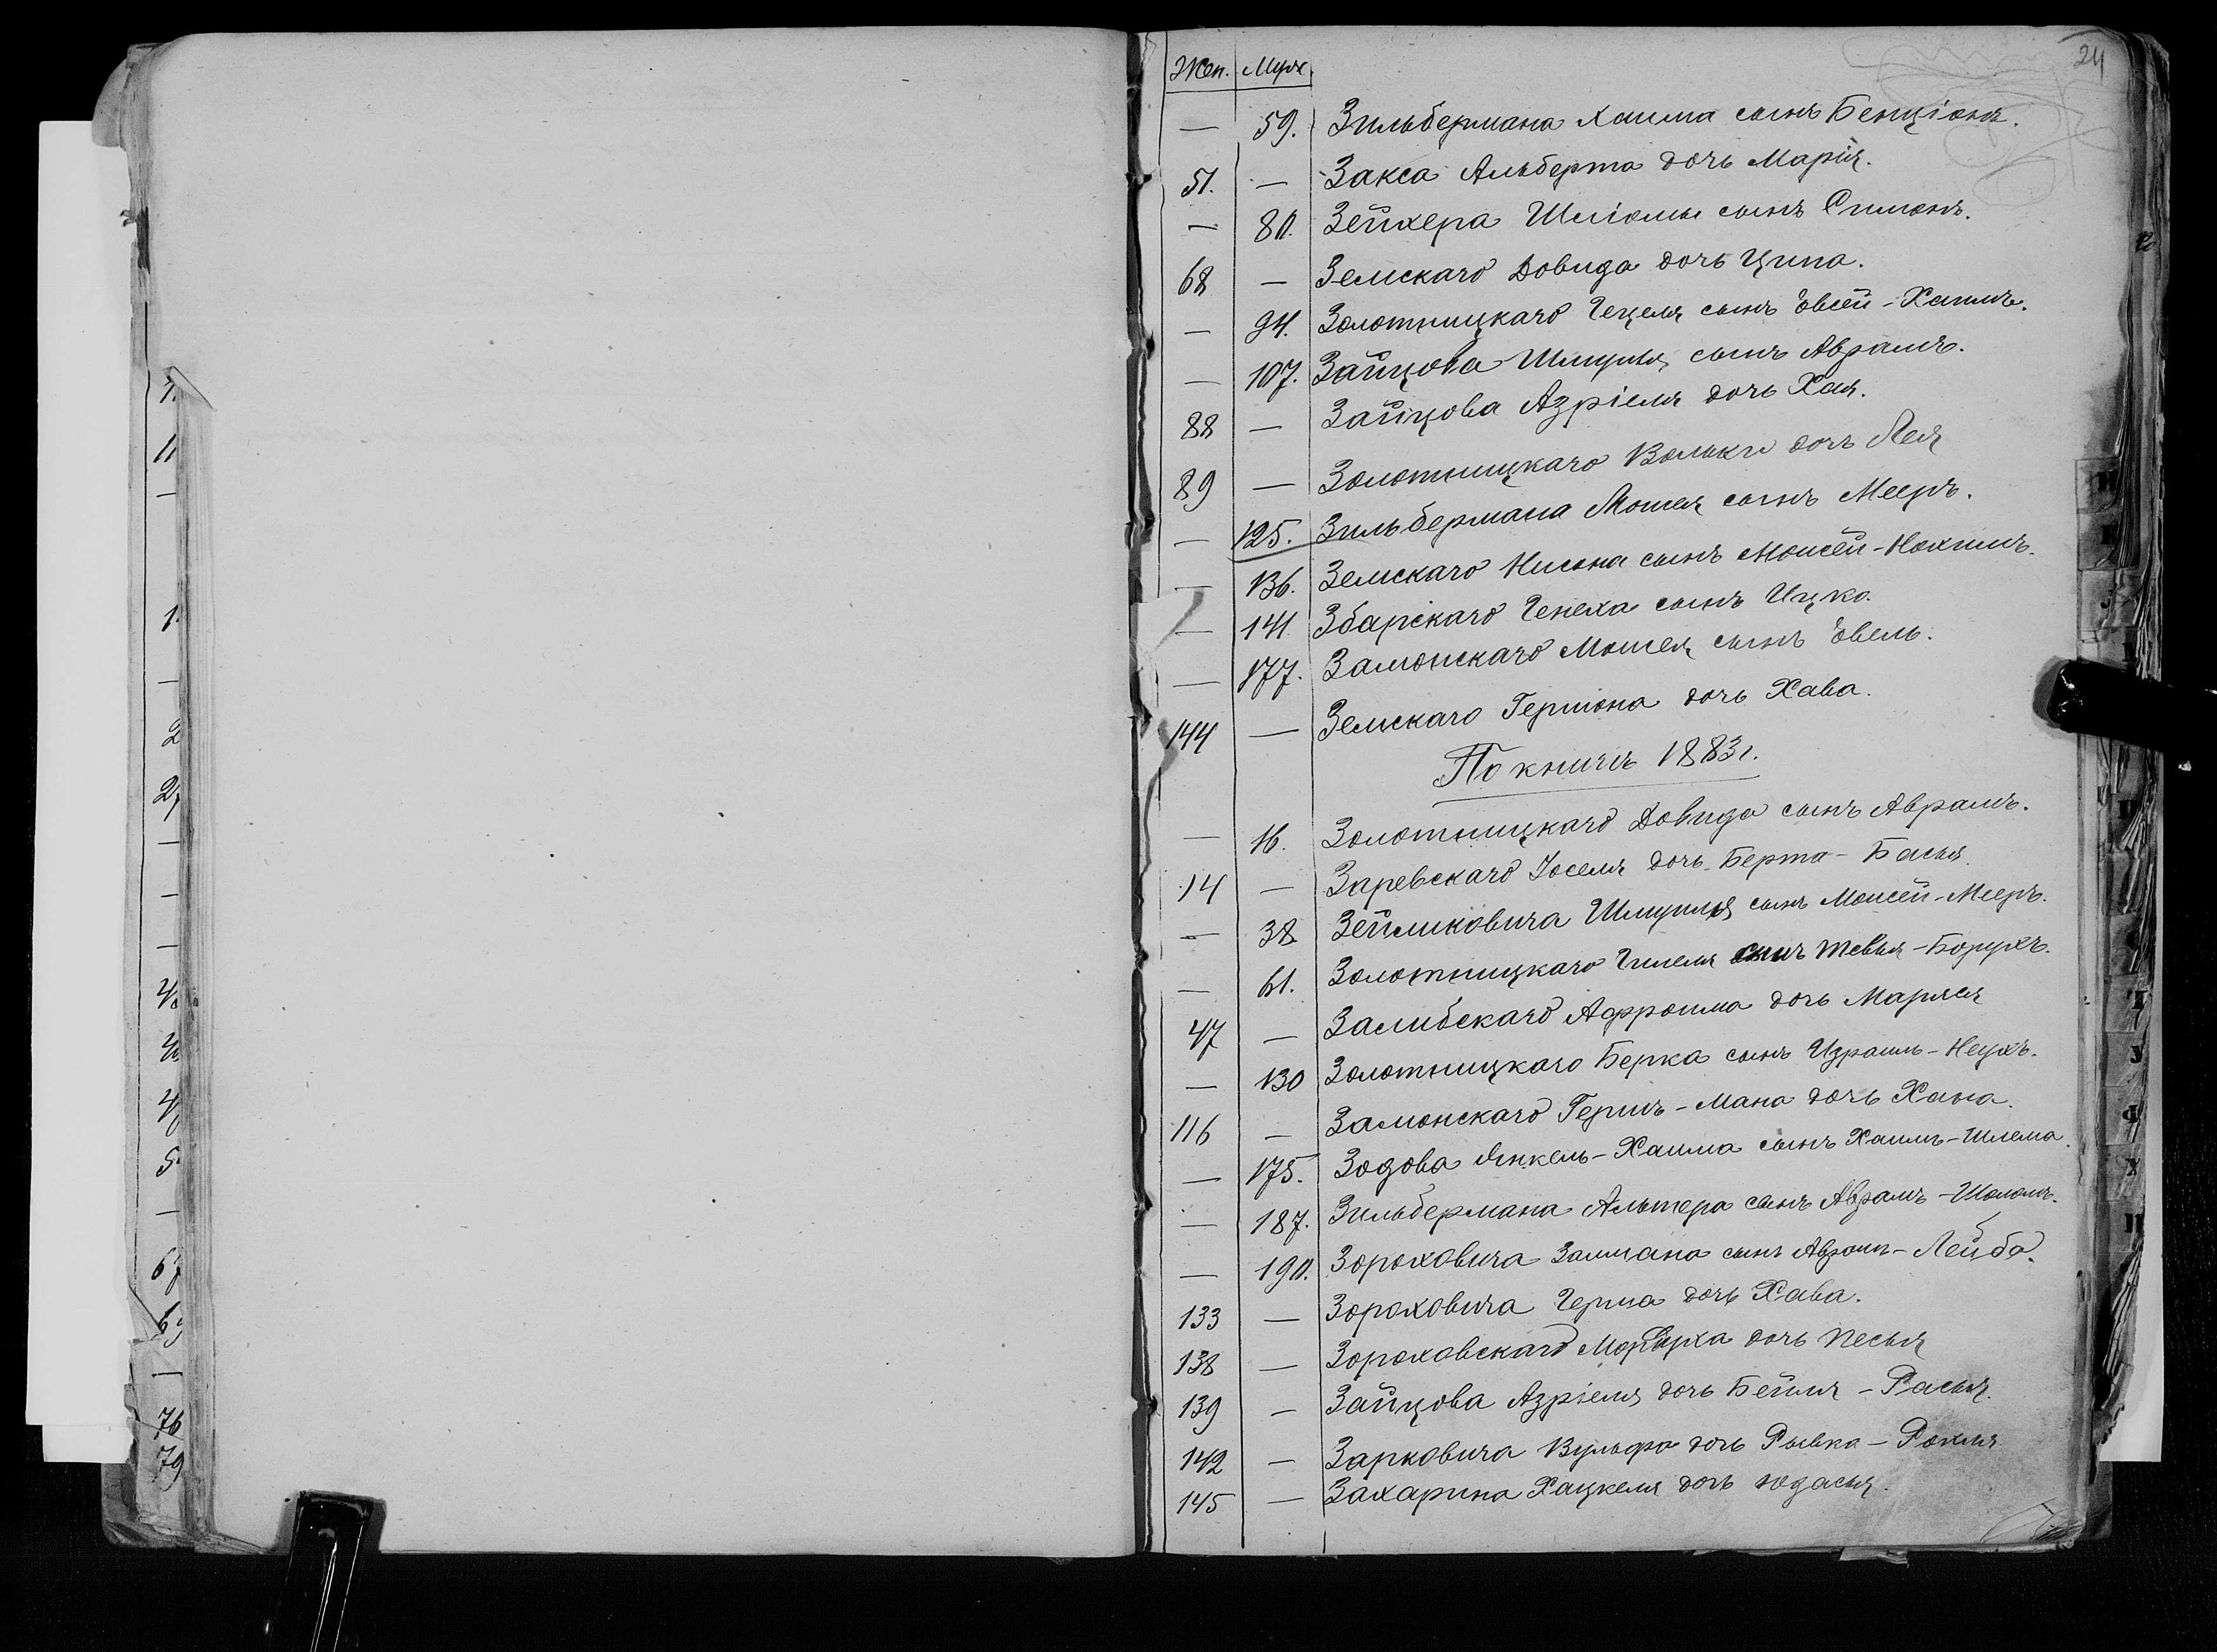 24
Жен. Муж.
— 59. Зильбермана Хаима сынъ Бенціонъ.
51. — Закса Альберта дочь Марія.
— 80. Зейхера Шліомы сынъ Симонъ.
68 — Земскаго Довида дочь Ципа.
— 94. Золотницкаго Гецеля сынъ Евсей-Хаимъ.
— 107. Зайцова Шмуля сынъ Аврамъ.
88 — Зайцова Азріеля дочь Хая.
89 — Золотницкаго Вольки дочь Лея
— 125. Зильбермана Мошея сынъ Мееръ.
— 136. Земскаго Нисона сынъ Моисей-Нохимъ.
— 141 Збарскаго Генеха сынъ Ицко.
— 177. Замонскаго Мошея сынъ Евель.
144 — Земскаго Гершона дочь Хава.
По книгѣ 1883 г.
— 16. Золотницкаго Довида сынъ Аврамъ.
14 — Заревскаго Іоселя дочь Берта-Басья.
— 38 Зейликовича Шмуиля сынъ Моисей-Мееръ.
— 61. Золотницкаго Гилеля сынъ Тевья-Борухъ.
47 — Залибскаго Афроима дочь Маряся
— 130 Золотницкаго Берка сынъ Израиль-Неухъ.
116 — Замонскаго Гершъ-Мана дочь Хана.
— 175. Зодова Янкель-Хаима сынъ Хаимъ-Шлема.
— 187. Зильбермана Альтера сынъ Аврамъ-Шоломъ.
— 190. Зороховича Залмана сынъ Аврамъ-Лейба.
133 — Зороховича Герша дочь Хава.
138 — Зороховскаго Мордуха дочь Песья
139 — Зайцова Азріеля дочь Бейля-Расья.
142 — Зарковича Вульфа дочь Рывка-Рохля
145 — Захарина Хацкеля дочь Юдася.